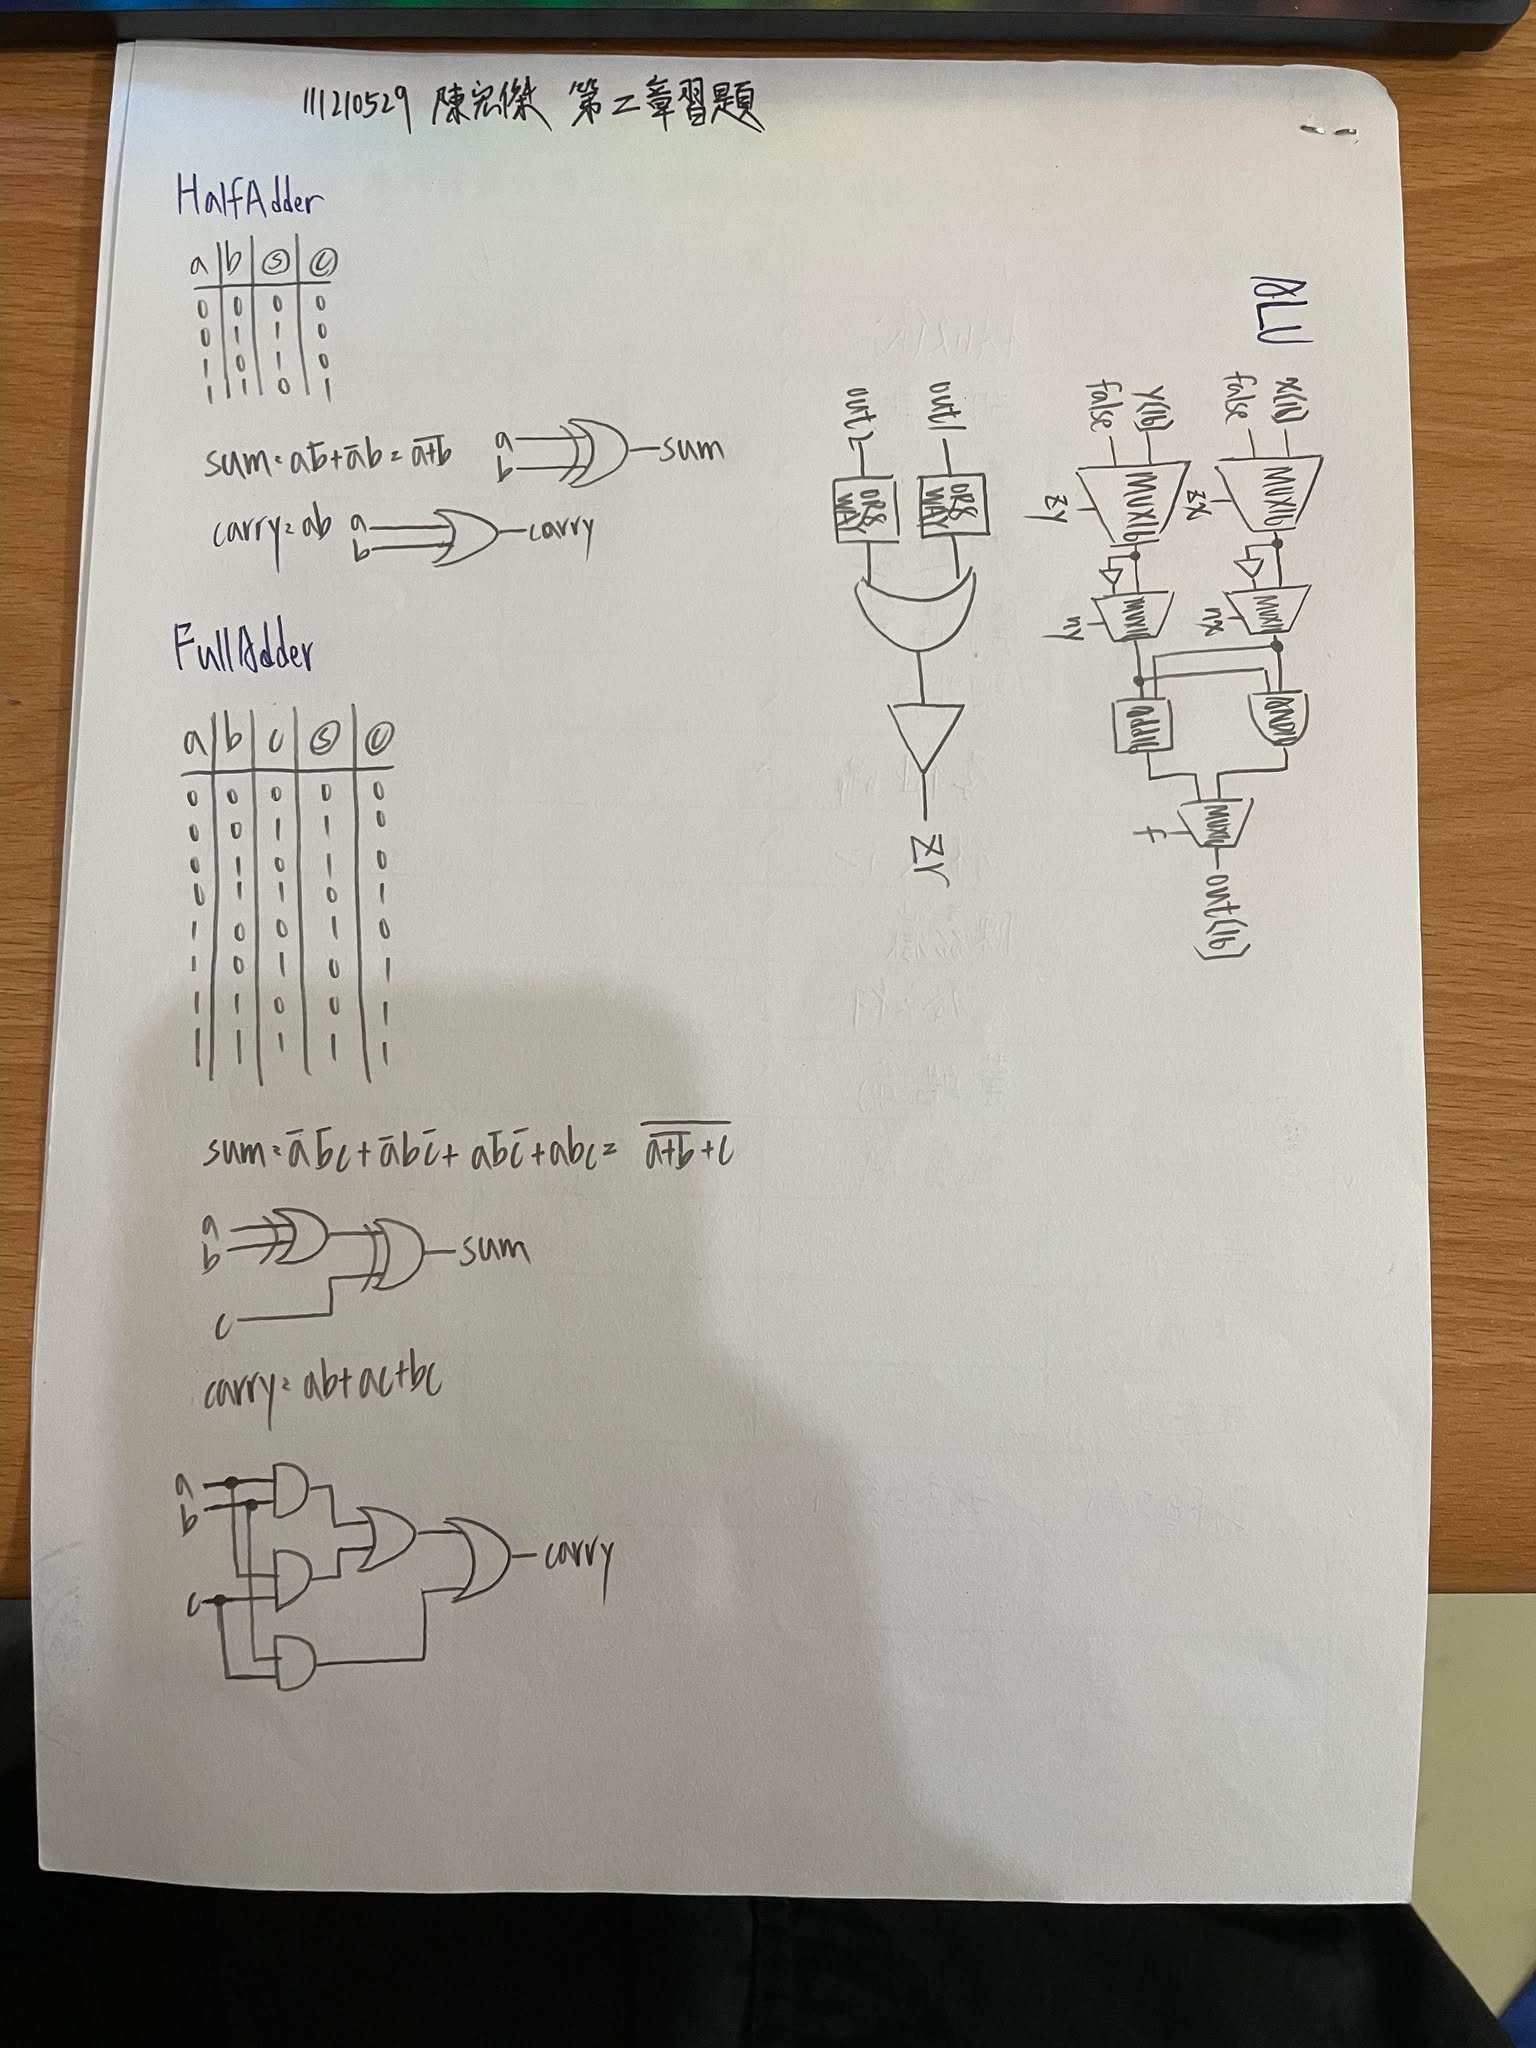 111210529 陳宏傑 第二章習題
HalfAdder
a b Ⓢ Ⓒ
0 0 0 0
0 1 1 0
1 0 1 0
1 1 0 1
sum = ab̅ + a̅b = a̅+̅b̅
a
b
sum
carry = ab
a
b
carry
FullAdder
a b c Ⓢ Ⓒ
0 0 0 0 0
0 0 1 1 0
0 1 0 1 0
0 1 1 0 1
1 0 0 1 0
1 0 1 0 1
1 1 0 0 1
1 1 1 1 1
sum = a̅b̅c + a̅bc̅ + ab̅c̅ + abc = a̅+̅b̅ + c
a
b
c
sum
carry = ab+ac+bc
a
b
c
carry
ALU
x(16)
false
MUX16
zx
MUX16
nx
AND16
y(16)
false
MUX16
zy
MUX16
ny
add16
MUX16
f
out(16)
out1
OR8
WAY
out2
OR8
WAY
zr